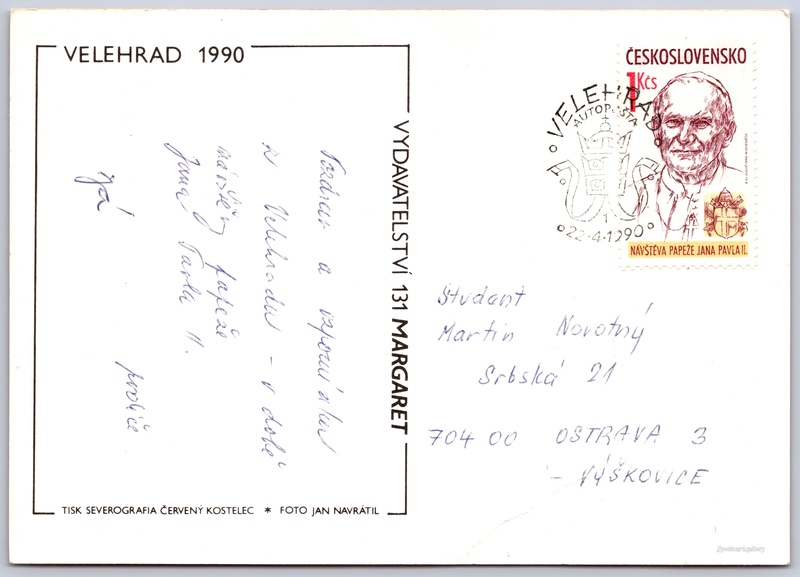 VELEHRAD 1990
Pozdrav a vzpomínku
z Velehradu – v době
návštěvy papeže
Jana Pavla II.
VYDAVATELSTVÍ 131 MARGARET
TISK SEVEROGRAFIA ČERVENÝ KOSTELEC * FOTO JAN NAVRÁTIL
ČESKOSLOVENSKO
1 Kčs
NÁVŠTĚVA PAPEŽE JANA PAVLA II.
VELEHRAD
AUTOPOŠTA
1
22-4-1990
Student
Martin Novotný
Srbská 21
704 00 OSTRAVA 3
– VÝŠKOVICE